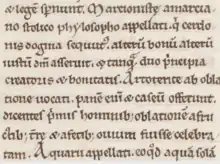 & legē spnunt. Marcioniste amarcia
no stoico phylosopho appellati. q̄ cerdo
nis dogma sequutꝰ. alterū bonū alterū
iustū dm̄ asseruit. & tanq̄ duo p̄ncipia
creatoris & bonitatis. Artotirite ab obla
tione uocati. panē enī & caseū offerunt.
dicentes p̄mis hominib; oblationē afru
ctib; tr̄e & afetib; ouium fuisse celebra
tam. Aquarii appellati. eo qđ aquā solā